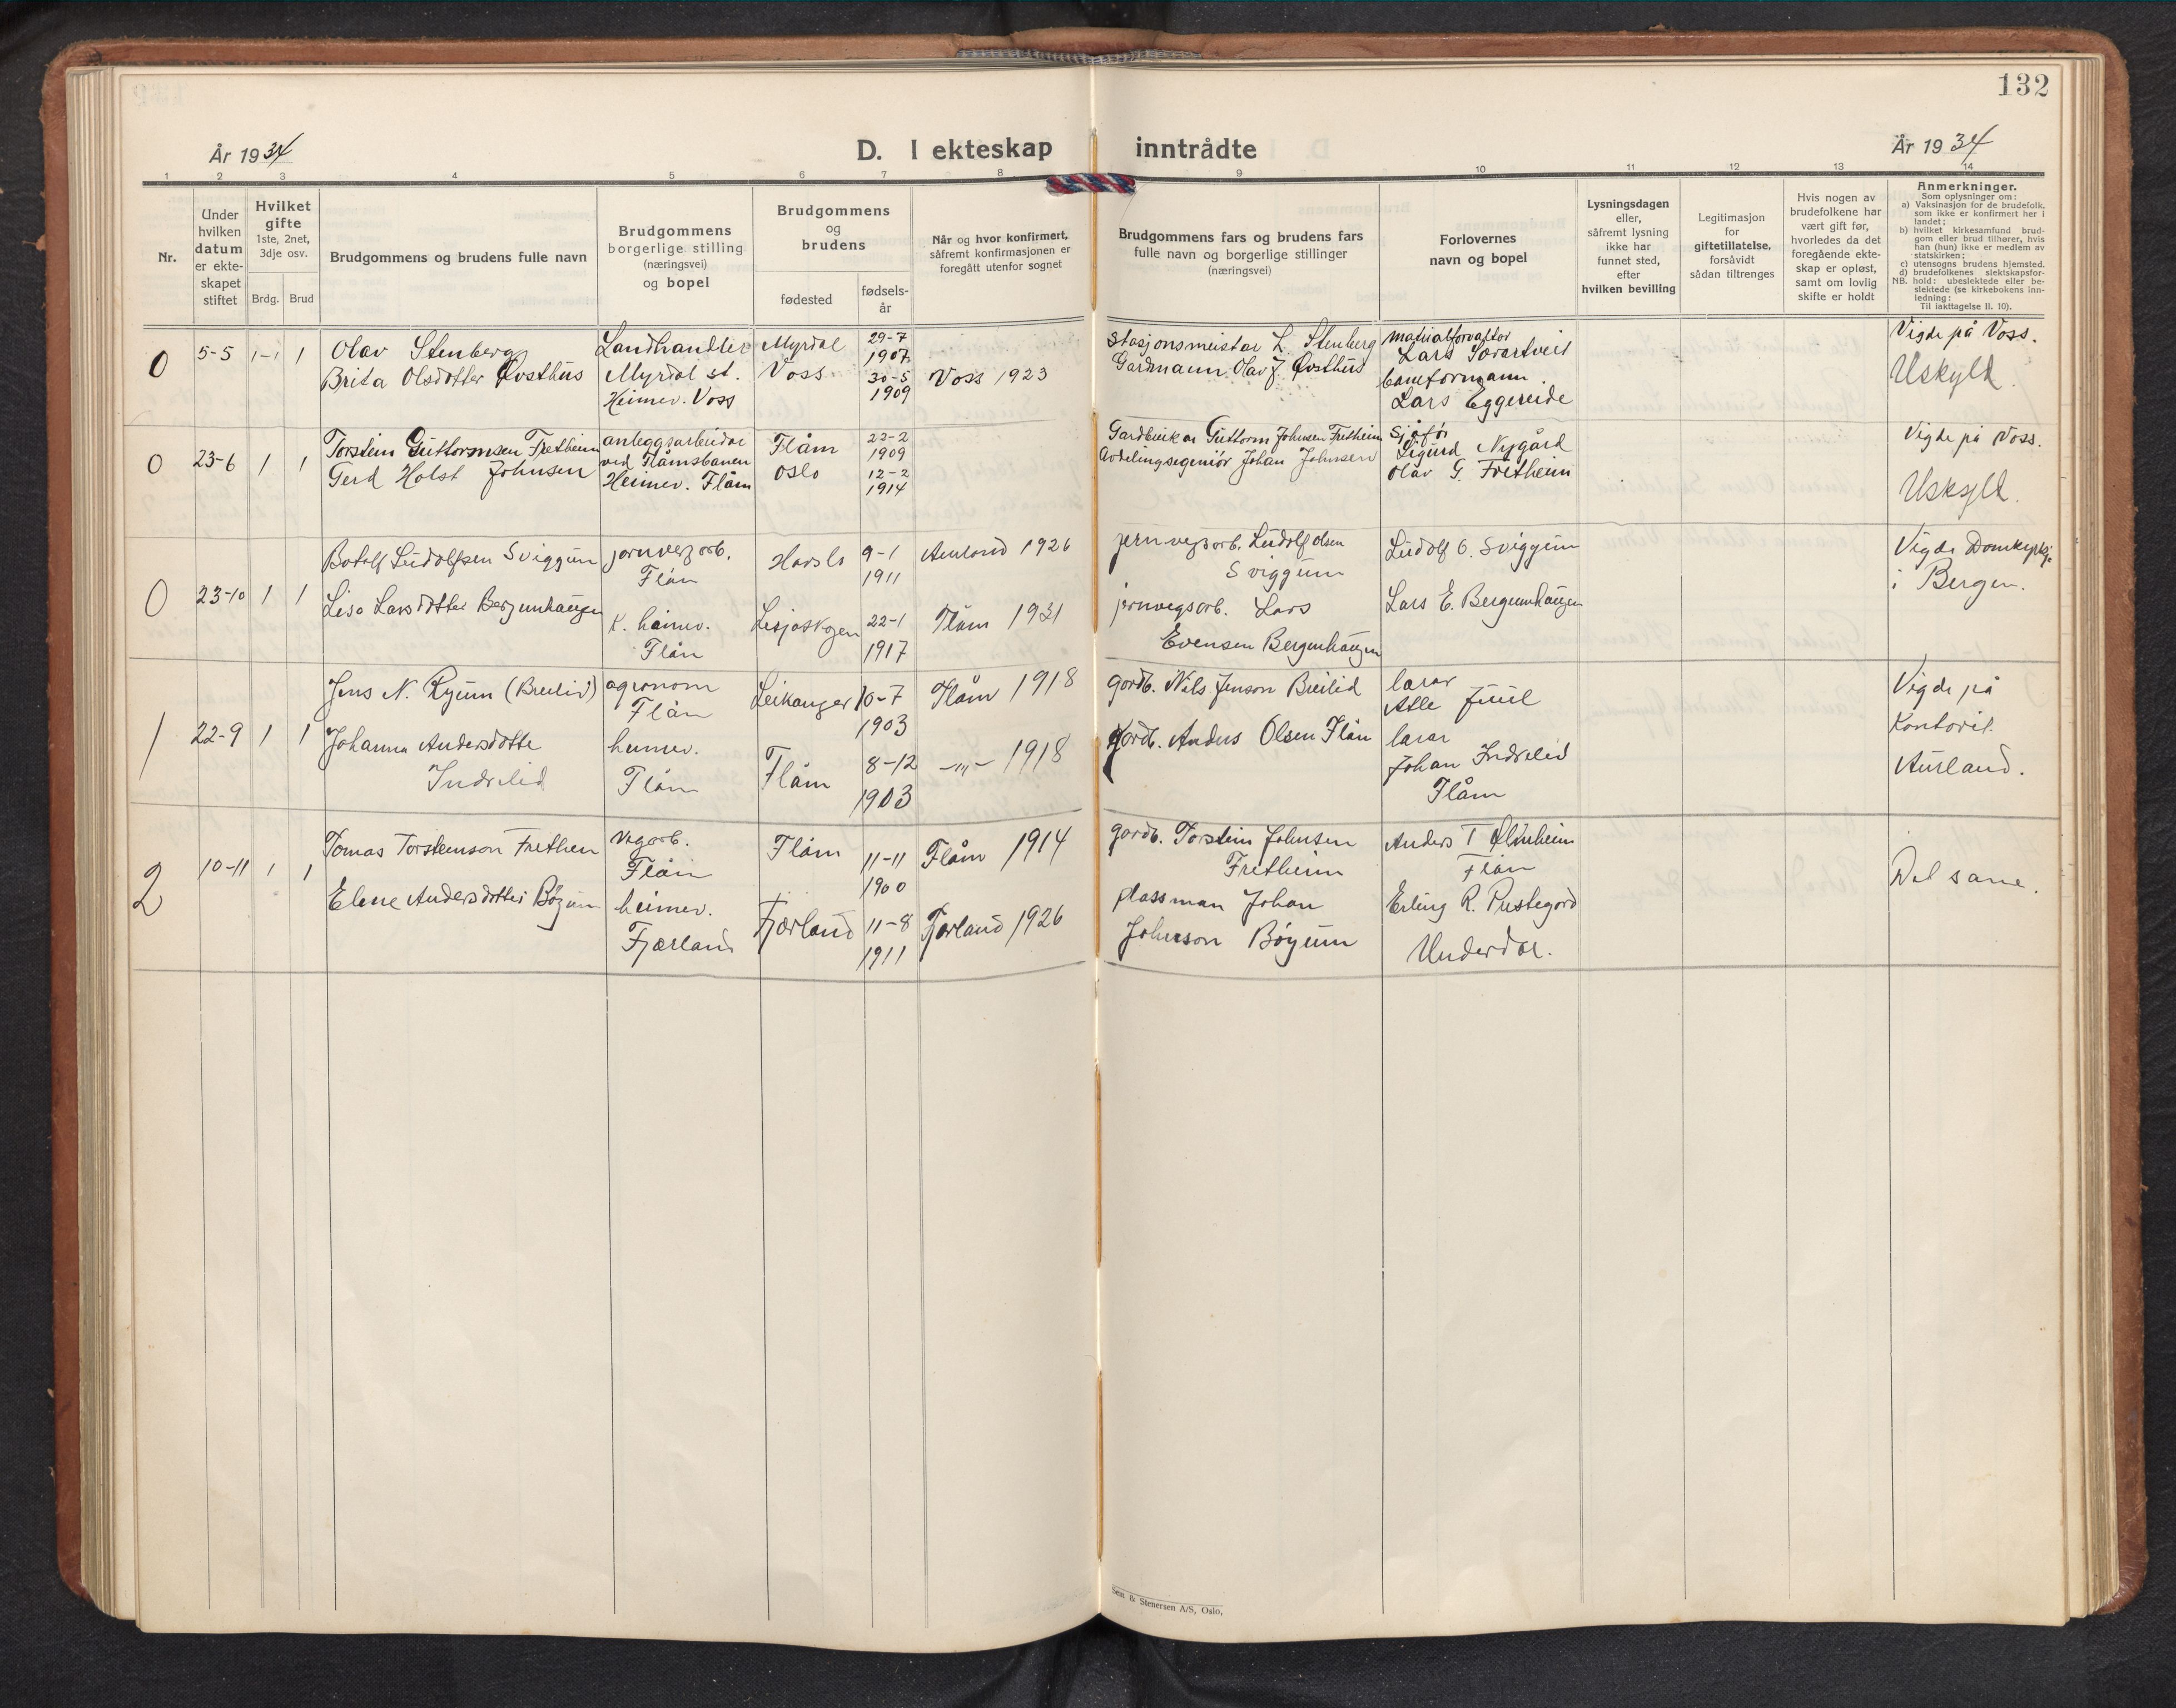 132
År 1934
D. I ekteskap inntrådte
År 1934
1 2 3 4 5 6 7 8 9 10 11 12 13 14
Nr.
Under
hvilken
datum
er ekte-
skapet
stiftet
Hvilket
gifte
1ste, 2net,
3dje osv.
Brdg. Brud
Brudgommens og brudens fulle navn
Brudgommens
borgerlige stilling
(næringsvei)
og bopel
Brudgommens
og
brudens
fødested
fødsels-
år
Når og hvor konfirmert,
såfremt konfirmasjonen er
foregått utenfor sognet
Brudgommens fars og brudens fars
fulle navn og borgerlige stillinger
(næringsvei)
Forlovernes
navn og bopel
Lysningsdagen
eller,
såfremt lysning
ikke har
funnet sted,
efter
hvilken bevilling
Legitimasjon
for
giftetillatelse,
forsåvidt
sådan tiltrenges
Hvis nogen av
brudefolkene har
vært gift før,
hvorledes da det
foregående ekte-
skap er opløst,
samt om lovlig
skifte er holdt
Anmerkninger.
Som oplysninger om:
a) Vaksinasjon for de brudefolk.
som ikke er konfirmert her i
landet;
b) hvilket kirkesamfund brud-
gom eller brud tilhører, hvis
han (hun) ikke er medlem av
statskirken;
c) utensogns brudens hjemsted.
d) brudefolkenes slektskapsfor-
NB. hold: ubeslektede eller be-
slektede (se kirkebokens inn-
ledning:
Til iakttagelse II. 10).
0
5-5
1-1
1
Olav Stenberg
Brita Olsdotter Qvsthus
Landhandler
Myrdal st.
Heimev. Voss
Myrdal
Voss
29-7
1907
30-5
1909
Voss 1923
Stasjonsmeistar L. Stenberg
Gardmann Olav J. Qvsthus
Lars
baneformann
Lars Eggereide
Vigde på Voss.
Uskyld.
0
23-6
1
1
Torstein Guttormsen Fretheim
Gerd Holst Johnsen
anleggsarbeidar
ved Flåmsbanen
Heimev. Flåm
Flåm
Oslo
22-2
1909
12-2
1914
Gardbrukar Guttorm Johnsen Fretheim
Avdelingsegeniör Johan Johnsen
Sjåfør
Sigurd Nygård
Olav G. Fretheim
Vigde på Voss.
Uskyld.
0
23-10
1
1
Botolf Ludolfsen Sviggum
Lisa Larsdotter Bergumhaugen
jernvegsarb.
Flåm
k. heimev.
Flåm
Hafslo
Lesjaskogen
9-1
1911
22-1
1917
Aurland 1926
Flåm 1931
jernvegsarb. Ludolf Olsen
Sviggum
jernvegsarb. Lars
Evensen Bergumhaugen
Ludolf O. Sviggum
Lars E. Bergumhaugen
Vigde Domkyrkja
i Bergen.
1
22-9
1
1
Jens N. Ryum (Breilid)
Johanna Andersdotte
Indrelid
agronom
Flåm
heimev.
Flåm
Leikanger
Flåm
10-7
1903
8-12
1903
Flåm 1918
-"- 1918
gardb. Nils Jenson Breilid
gardb. Anders Olsen Flåm
lærar
Atle Juul
lærar
Johan Indrelid
Flåm
Vigde på
Kontoret
Aurland.
2
10-11
1
1
Tomas Torsteinson Frethem
Elene Andersdotter Bøyum
vegarb.
Flåm
heimev.
Fjærland
Flåm
Fjærland
11-11
1900
11-8
1911
Flåm 1914
Fjærland 1926
gardb. Torstein Johnsen
Fretheim
plassman Johan
Johnson Bøyum
Anders T
Flåm
Erling R. Prestegard
Underdal.
Det same.
Sem & Stenersen A/S, Oslo.